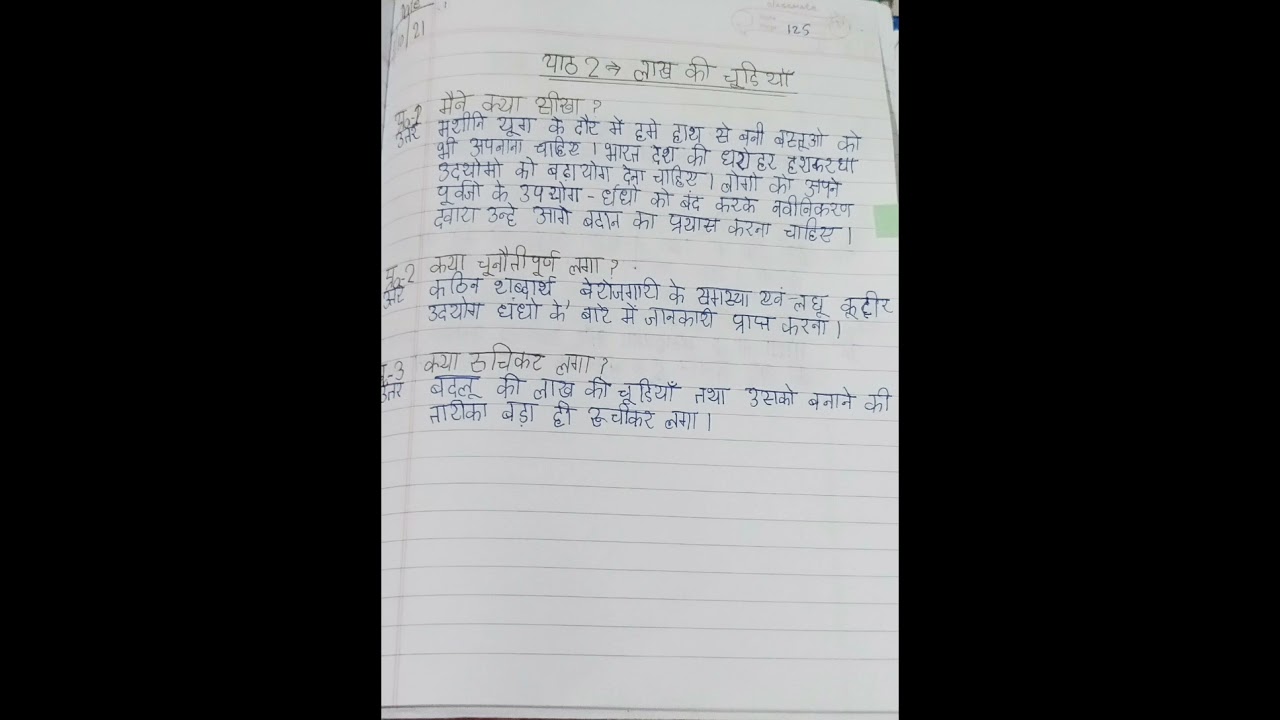 Date
/21
classmate
Date
Page 125
पाठ 2 → लाख की चूडियाँ
मैने क्या सीखा ?
उत्तर मशीनि यूग के दौर में हमे हाथ से बनी बस्तूओ को
भी अपनाना चाहिए । भारत देश की धरोहर हथकरधा
उदयोगो को बढ़ायोग देना चाहिए । लोगो को अपने
पूर्वजो के उपयोग - धंधो को बंद करके नवीनिकरण
दवारा उन्हे आगे बढाने का प्रयास करना चाहिए ।
प्र-2 क्या चूनौतीपूर्ण लगा ?
उत्तर कठिन शब्दार्थ बेरोजगारी के समस्या एवं लघू कूटीर
उदयोग धंधो के बारे में जानकारी प्राप्त करना ।
प्र-3 क्या रूचिकर लगा ?
उत्तर बदलू की लाख की चूडियाँ तथा उसको बनाने की
तारीका बड़ा ही रूचीकर लगा ।